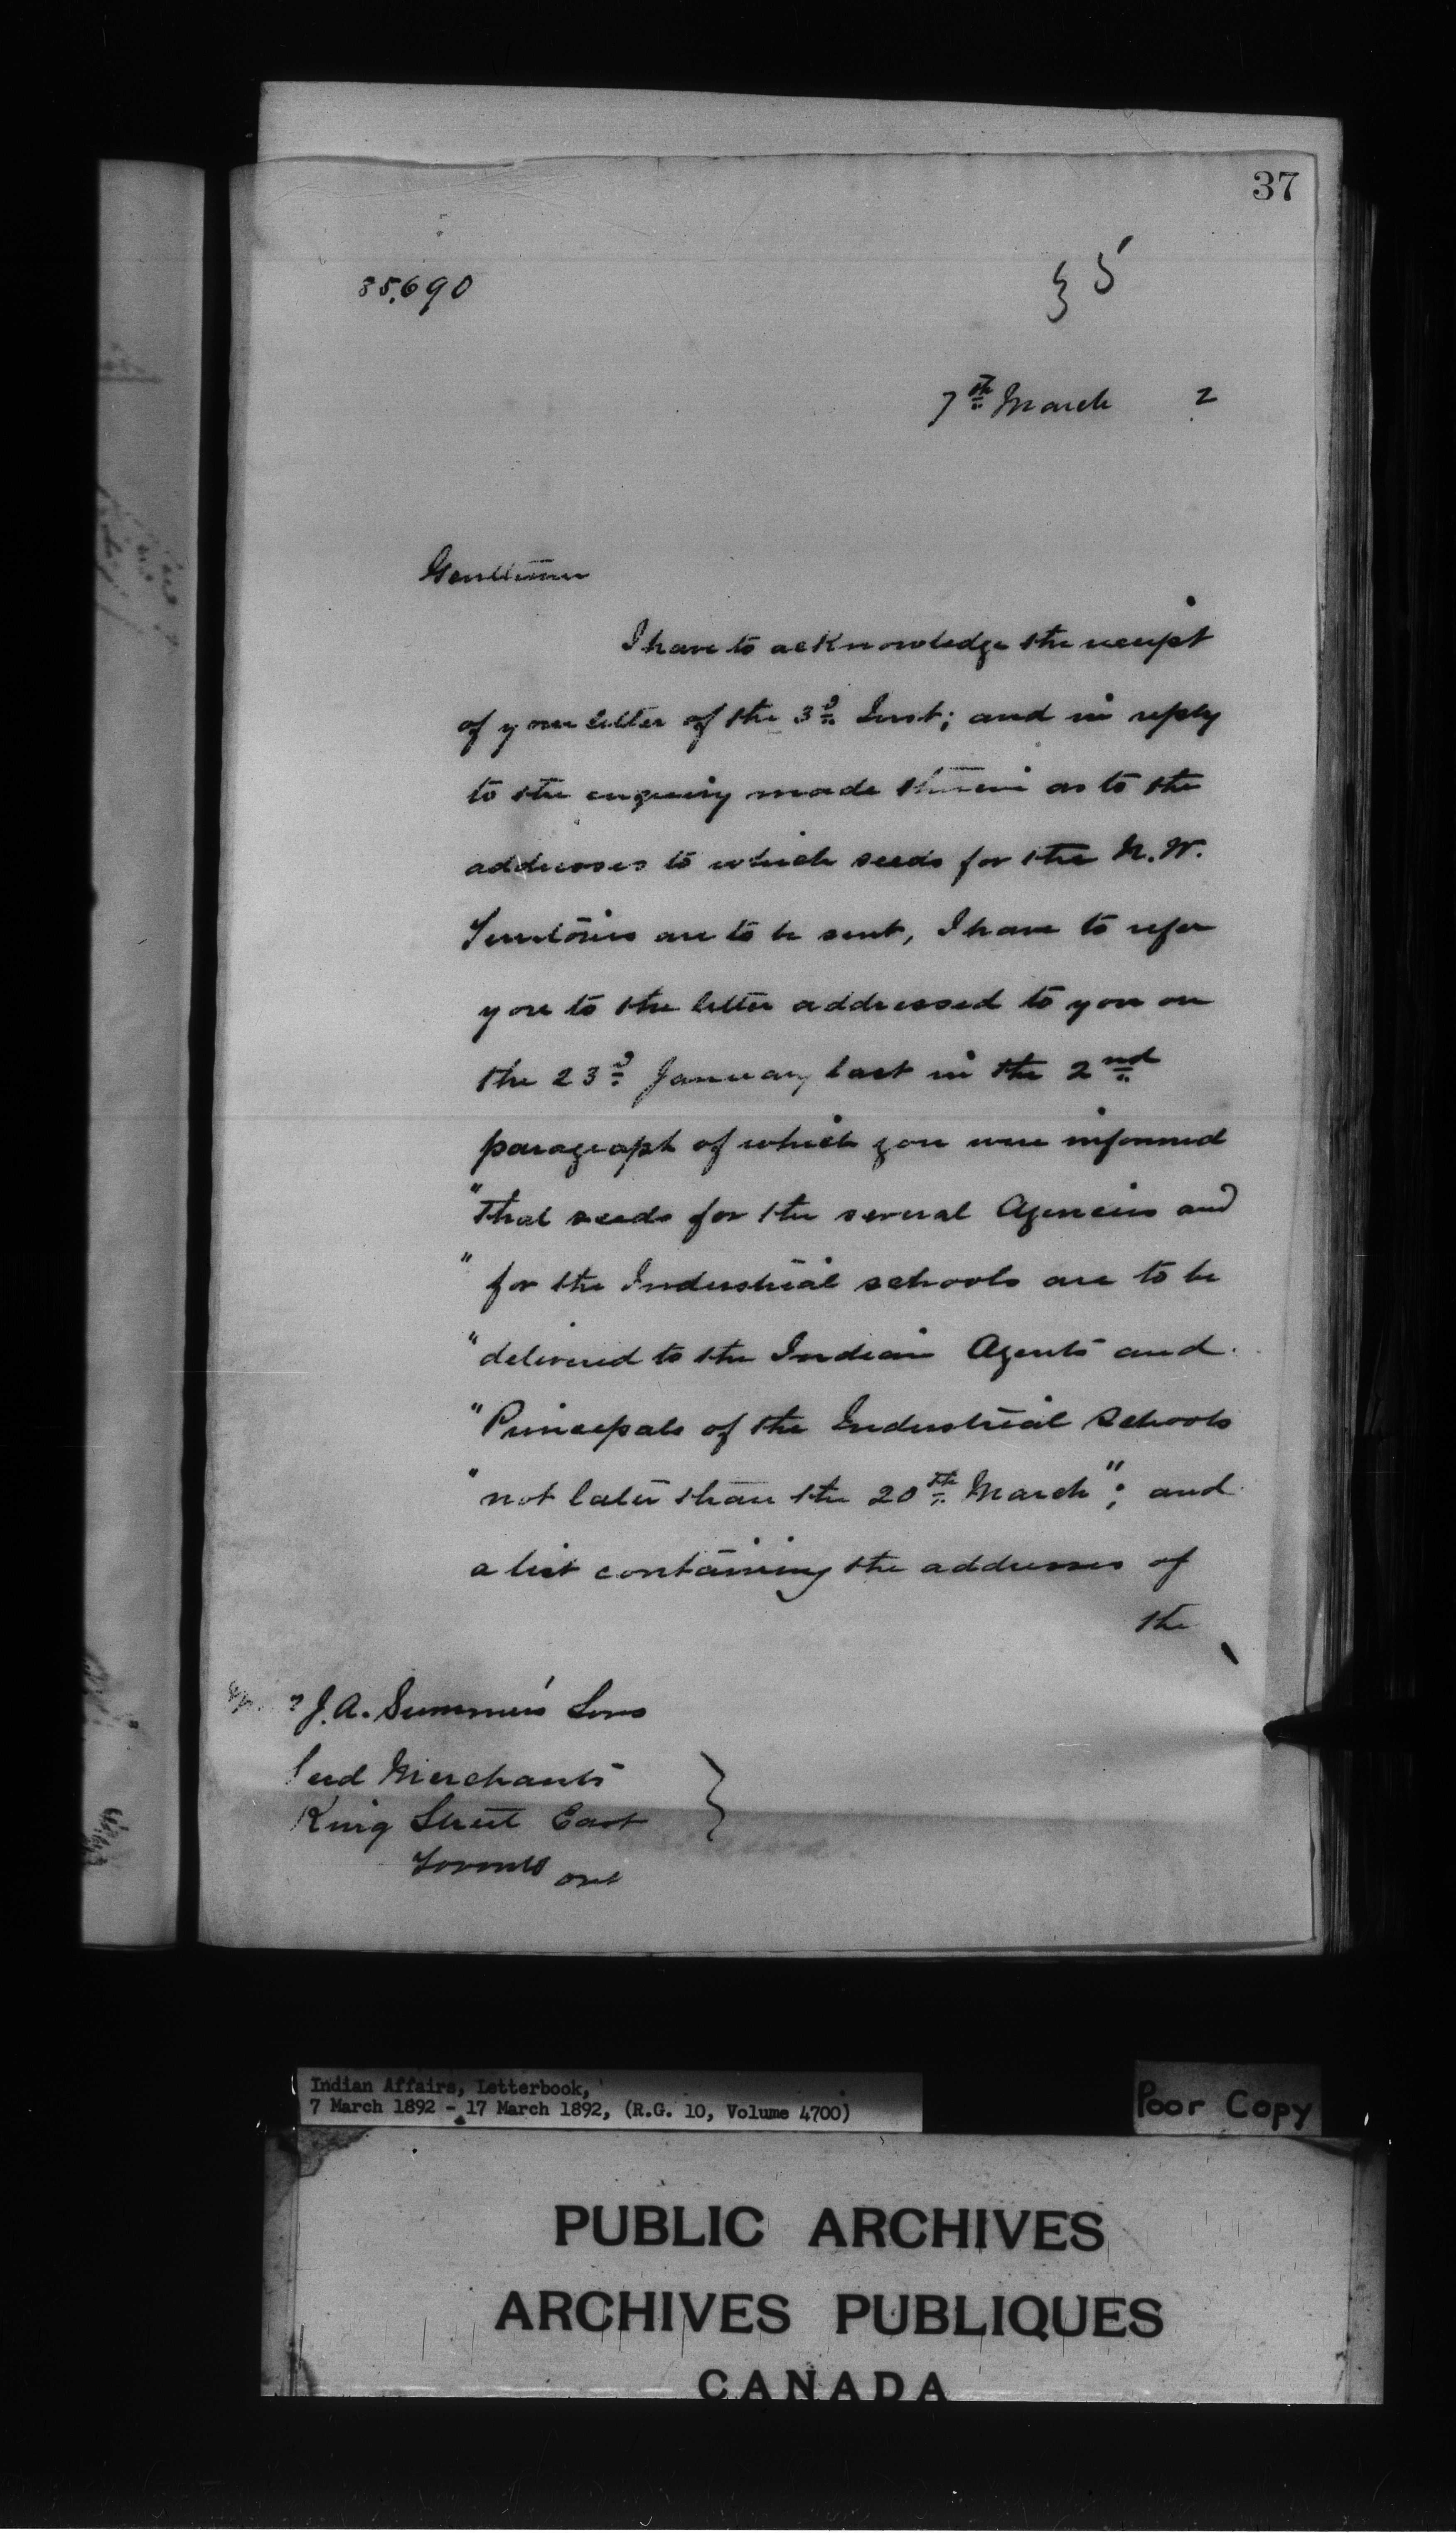 37
35,690
5
7th March 2
Gentlemen
I have to acknowledge the receipt
of your letter of the 3d Inst; and in reply
to the enquiry made therein as to the
addresses to which seeds for the N. W.
Territories are to be sent, I have to refer
you to the letter addressed to you on
the 23d January last in the 2nd
paragraph of which you were informed
"That seeds for the several Agencies and
" for the Industrial schools are to be
"delivered to the Indian Agents and
"Principals of the Industrial Schools
"not later than the 20th March"; and
a list containing the addresses of
the
J. A. Simmers' Sons
Seed Merchants
King Street East
Toronto Ont
Indian Affairs, Letterbook,
7 March 1892 - 17 March 1892, (R.G. 10, Volume 4700)
Poor Copy
PUBLIC ARCHIVES
ARCHIVES PUBLIQUES
CANADA